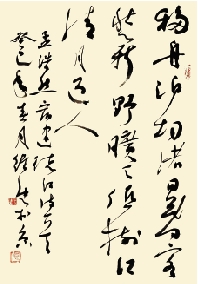 移舟泊烟渚日暮客
愁新野曠天低樹江
清月近人
孟浩然宿建德江詩
癸巳年月